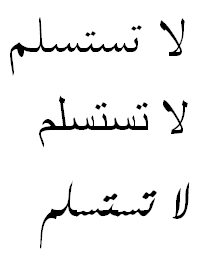 لا تستسلم
لا تستسلم
لا تستسلم